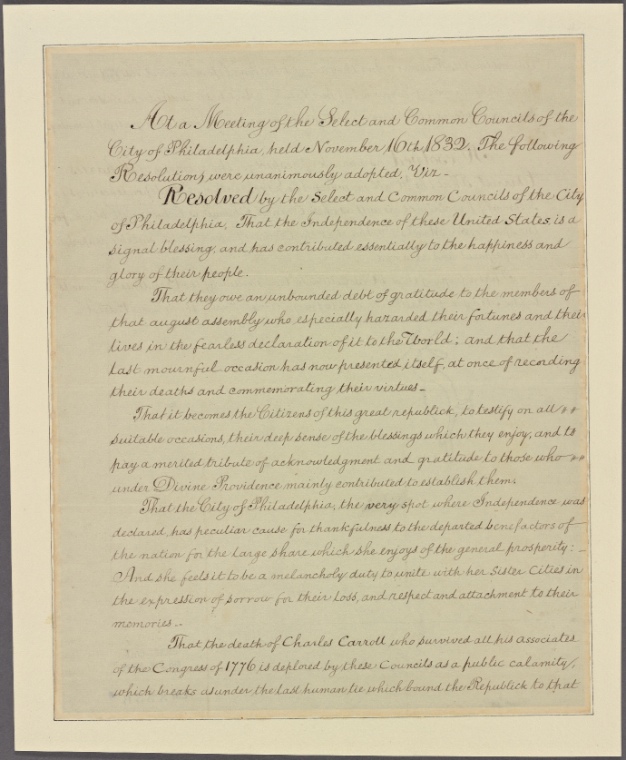 At a Meeting of the Select and Common Councils of the
City of Philadelphia, held November 16th 1832, The following
Resolutions were unanimously adopted, Viz –
Resolved by the Select and Common Councils of the City
of Philadelphia, That the Independence of these United States is a
signal blessing, and has contributed essentially to the happiness and
glory of their people.
That they owe an unbounded debt of gratitude to the members of
that august assembly who, especially hazarded their fortunes and their
lives in the fearless declaration of it to the World; and that the
last mournful occasion has now presented itself, at once of recording
their deaths and commemorating their virtues –
That it becomes the Citizens of this great republick, to testify on all
suitable occasions, their deep sense of the blessings which they enjoy, and to
pay a merited tribute of acknowledgment and gratitude to those who
under Divine Providence mainly contributed to establish them.
That the City of Philadelphia, the very spot where Independence was
declared, has peculiar cause for thankfulness to the departed benefactors of
the nation for the large share which she enjoys of the general prosperity: –
And she feels it to be a melancholy duty to unite with her Sister Cities in
the expression of sorrow for their loss, and respect and attachment to their
memories –
That the death of Charles Carroll who survived all his associates
of the Congress of 1776 is deplored by these Councils as a public calamity,
which breaks asunder the last human tie which bound the Republick to that